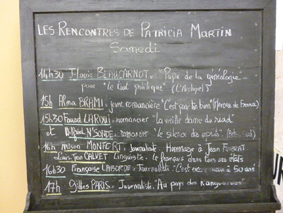 LES RENCONTRES DE PATRICIA MARTIN
Samedi
14h30 BEAUCARNOT "Pape de la généalogie"
pour "le tout politique"
15h Alma BRAMI jeune romancière "C'est pour ton bien" (Mercure de France)
15h30 Fouad LAROUI romancier "La vieille dame du riad"
et Wilfried N'SONDÉ romancier "Le silence des esprits" (Actes Sud)
16h Alison MONTFORT Journaliste Hommage à Jean FERRAT
Louis-Jean CALVET Linguiste le français dans tous ses états
16h30 Françoise LABORDE Journaliste "C'est encore mieux à 50 ans"
17h Gilles PARIS Journaliste "Au pays des kangourous"